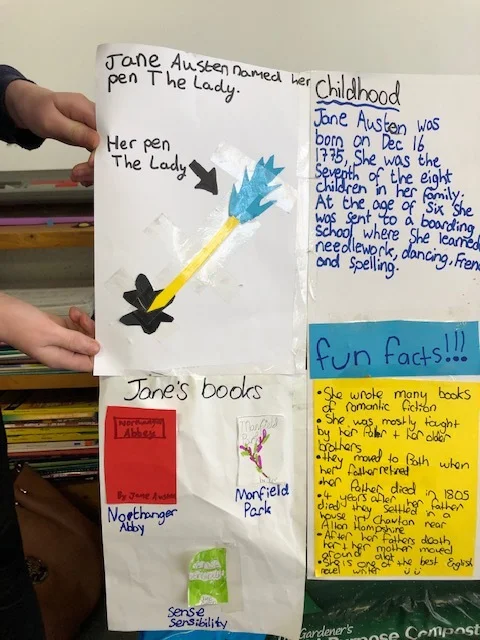 Jane Austen named her
pen The Lady.
Her pen
The Lady
Childhood
Jane Austen was
born on Dec 16
1775, She was the
seventh of the eight
children in her family.
At the age of six she
was sent to a boarding
school where She learned
needlework, dancing, Fren
and spelling.
Jane's books
Northanger
Abbey
By Jane Austen
Northanger
Abby
Manfield
Monfield
Park
sense
sensibility
fun facts!!!
• She wrote many books
of romantic fiction
• She was mostly taught
by her father + her older
brothers
• they moved to Bath when
her father retired
her Father died in 1805
• 4 years after her father
died they settled in a
house in Chawton near
Alton Hampshire
• After her fathers death
her + her mother moved
around alot
• She is one of the best English
novel writer
Gardener's
Purpose Compost